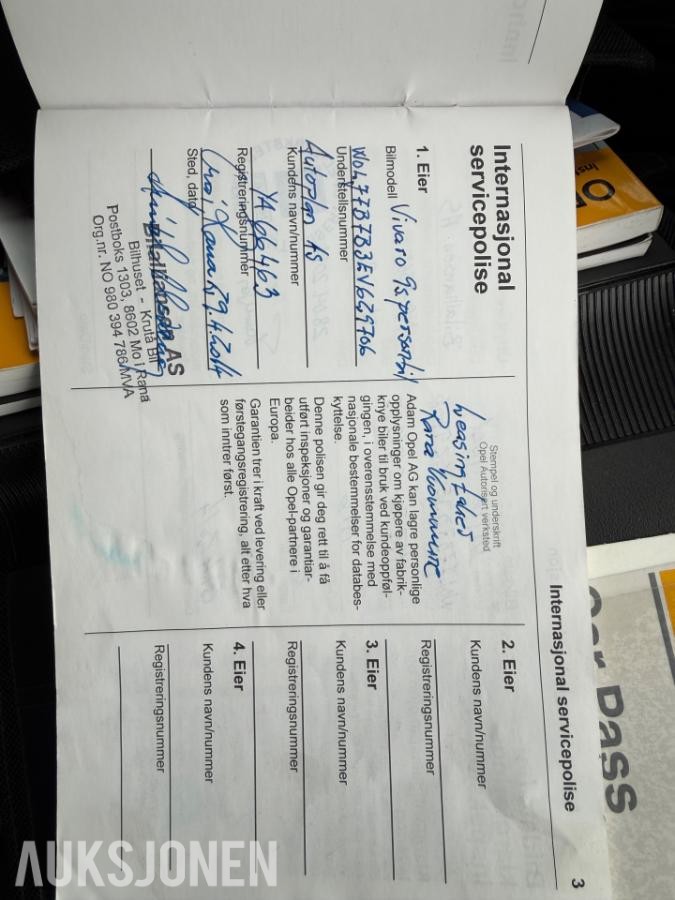 Internasjonal servicepolise
3
Internasjonal
servicepolise
1. Eier
Bilmodell Vivaro 9s personbil
W0L7J7B7B3EV629706
Understellsnummer
Autoplan AS
Kundens navn/nummer
YA 66463
Registreringsnummer
29.4.2014
Sted, dato
AS
Bilhuset - Krutå Bil
Postboks 1303, 8602 Mo i Rana
Org.nr. NO 980 394 786 MVA
Stempel og underskrift
Opel Autorisert verksted
Rana Kommune
Adam Opel AG kan lagre personlige
opplysninger om kjøpere av fabrik-
knye biler til bruk ved kundeoppføl-
gingen, i overensstemmelse med
nasjonale bestemmelser for databes-
kyttelse.
Denne polisen gir deg rett til å få
utført inspeksjoner og garantiar-
beider hos alle Opel-partnere i
Europa.
Garantien trer i kraft ved levering eller
førstegangsregistrering, alt etter hva
som inntrer først.
2. Eier
Kundens navn/nummer
Registreringsnummer
3. Eier
Kundens navn/nummer
Registreringsnummer
4. Eier
Kundens navn/nummer
Registreringsnummer
Car Pass
AUKSJONEN